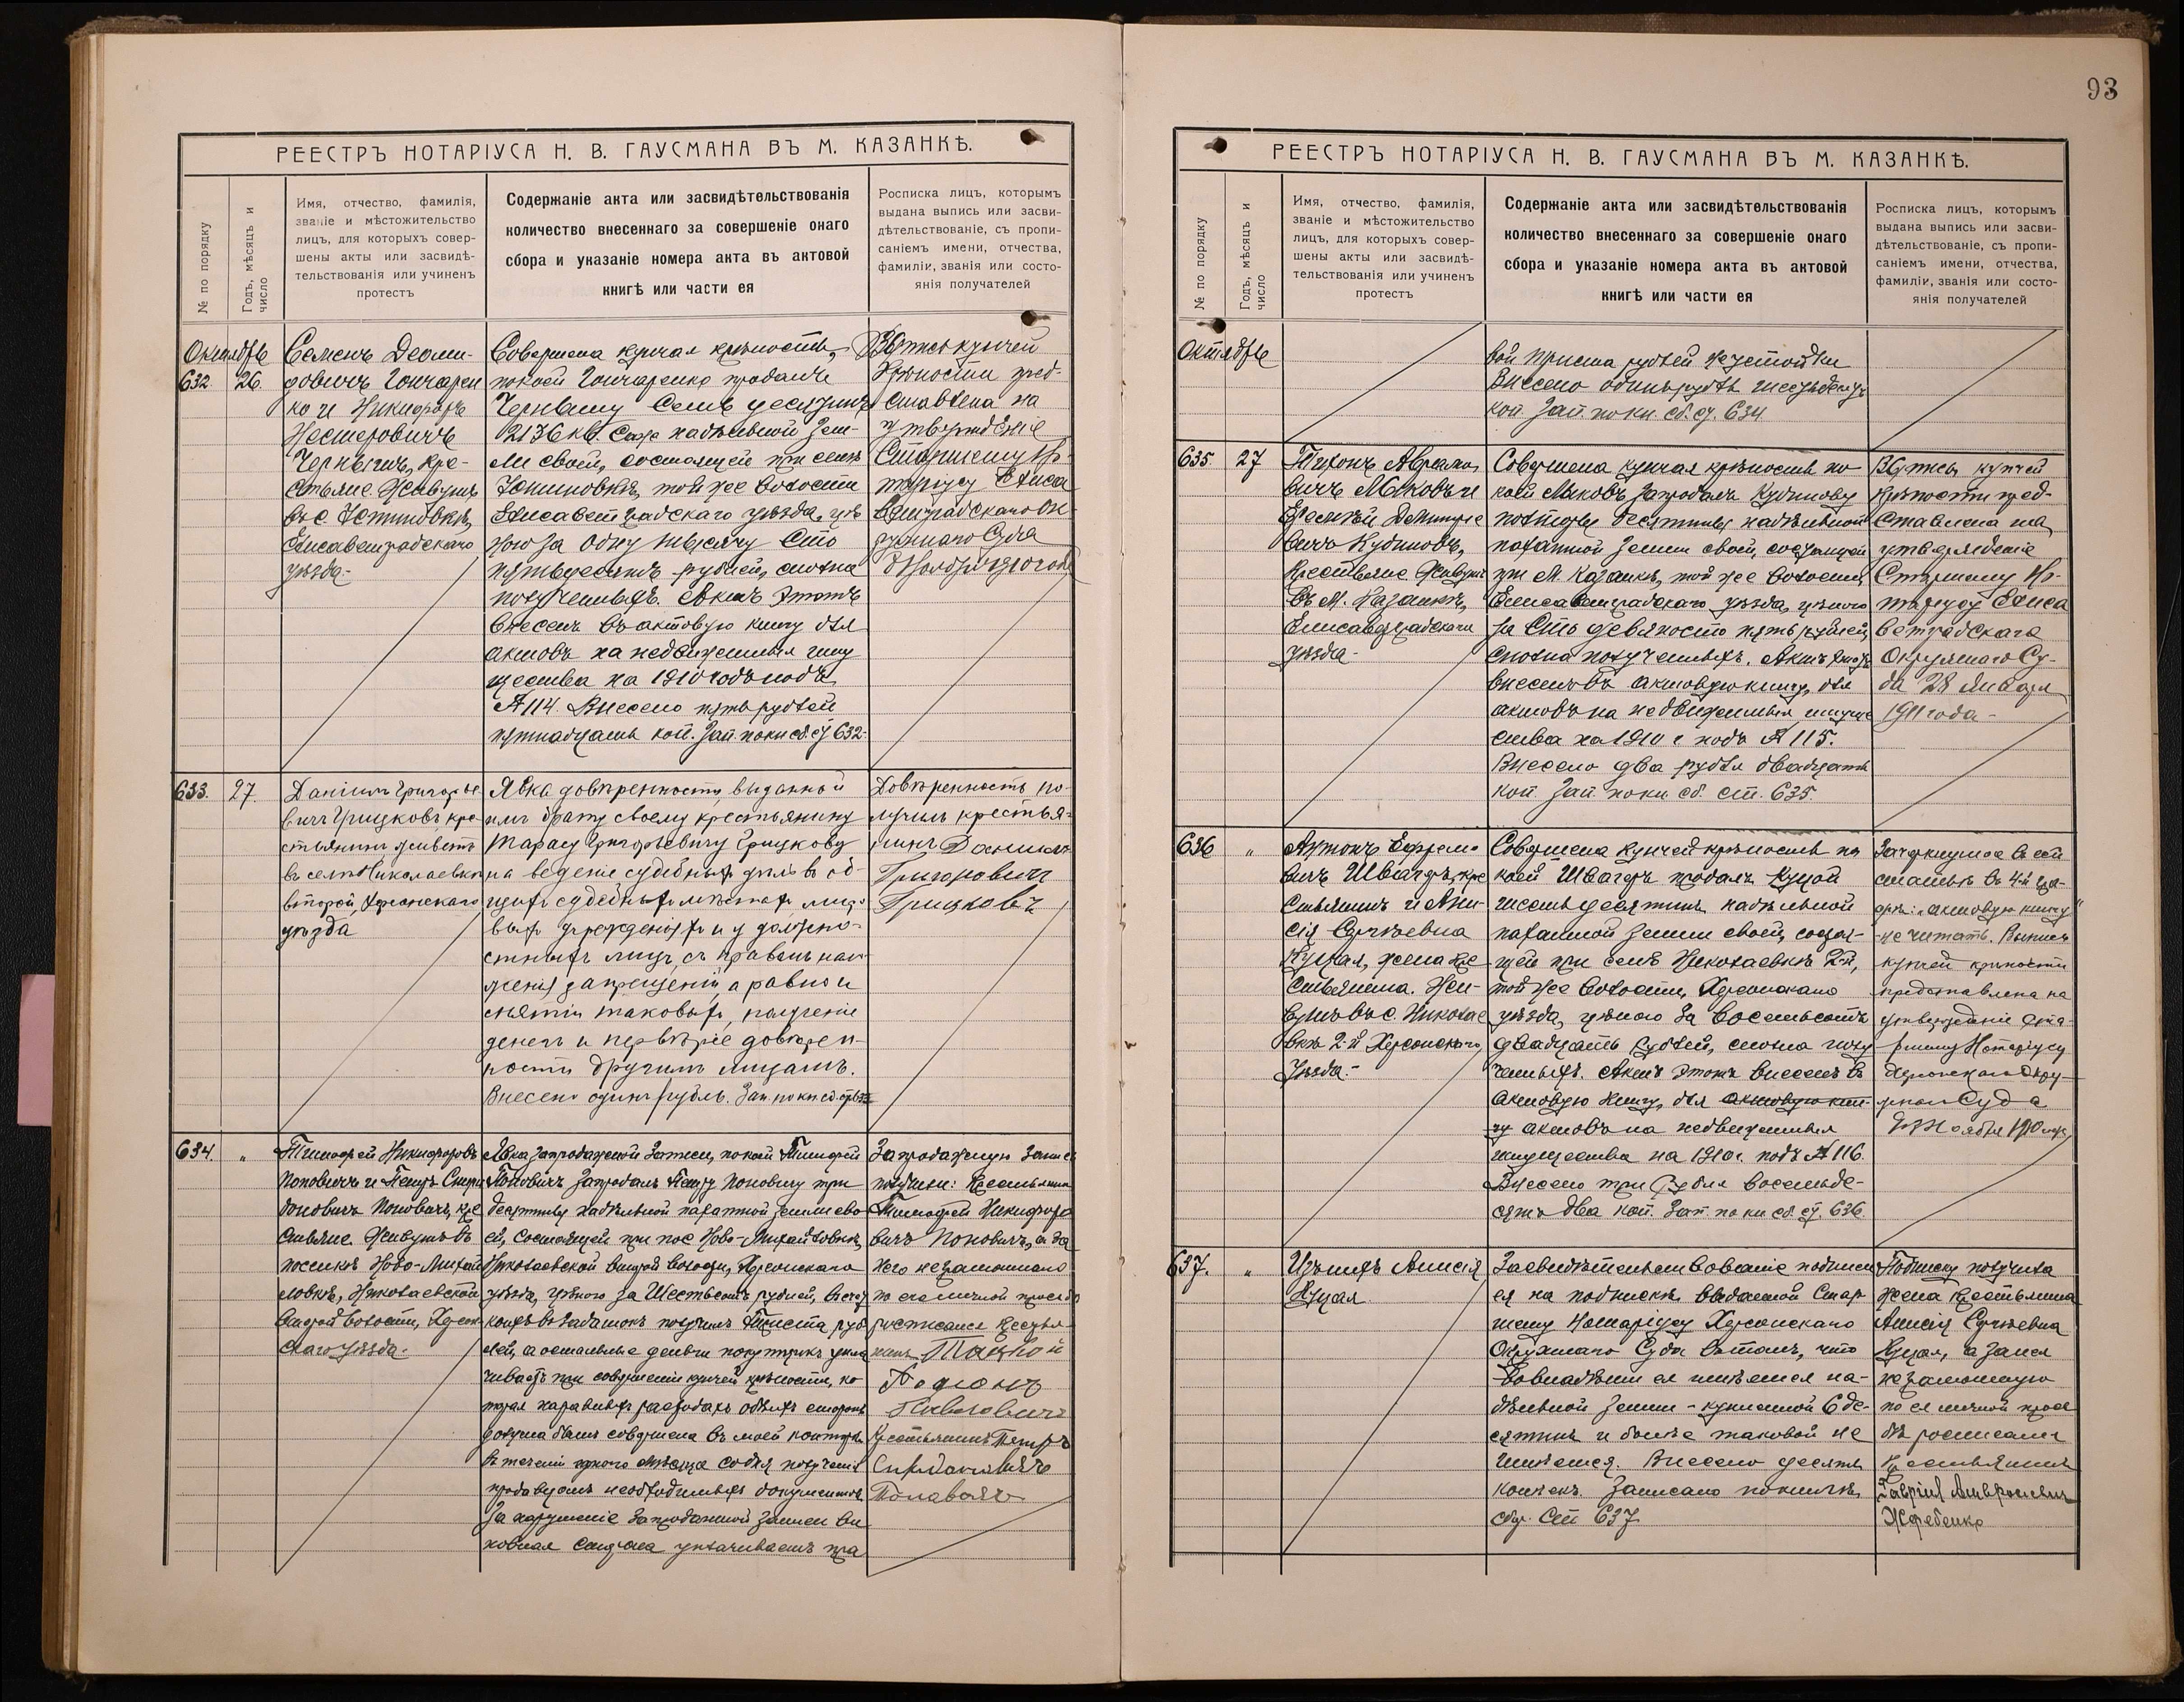 РЕЕСТРЪ НОТАРІУСА Н. В. ГАУСМАНА ВЪ М. КАЗАНКѢ.
№ по порядку
Годъ, мѣсяцъ и
число
Имя, отчество, фамилія,
званіе и мѣстожительство
лицъ, для которыхъ совер-
шены акты или засвидѣ-
тельствованія или учиненъ
протестъ
Содержаніе акта или засвидѣтельствованія
количество внесеннаго за совершеніе онаго
сбора и указаніе номера акта въ актовой
книгѣ или части ея
Росписка лицъ, которымъ
выдана выпись или засви-
дѣтельствованіе, съ пропи-
саніемъ имени, отчества,
фамиліи, званія или состо-
янія получателей
Октября
632. 26.
Семенъ
довичъ Гончарен
ко и Никифоръ
Нестеровичъ
кре-
стьяне. Живущіе
въ с. Устиновкѣ,
Елисаветградскаго
уѣзда-
Совершена купчая крѣпость,
по коей Гончаренко продалъ
Семь десятинъ
2136 кв. саж. надѣльной зем-
ли своей, состоящей при селѣ
Устиновкѣ, той же волости
Елисаветградскаго уѣзда, цѣ
ною за Одну тысячу Сто
пятьдесятъ рублей, сполна
полученныхъ. Актъ этотъ
внесенъ въ актовую книгу для
актовъ на недвижимыя иму
щества на 1910 годъ подъ
№ 114. Внесено пять рублей
пятнадцать коп. Зап. по кн. сб. ст. 632-
Выпись купчей
крѣпости пред-
ставлена на
утвержденіе
Старшему Но-
таріусу Елиса
ветградскаго Ок-
ружнаго Суда
Ноября 1910 года
633. 27.
Даніилъ Григорье
вичъ Грицковъ, кре-
стьянинъ живетъ
въ селѣ Николаевкѣ
второй, Херсонскаго
уѣзда
Явка довѣренности, выданной
имъ брату своему крестьянину
Тарасу Григорьевичу Грицкову
на веденіе судебныхъ дѣлъ въ об-
щихъ судебныхъ мѣстахъ миро
выхъ учрежденіяхъ и у должно-
стныхъ лицъ, съ правомъ нало
женія запрещеній, а равно и
снятіи таковыхъ, полученіе
денегъ и передовѣріе довѣрен-
ности другимъ лицамъ.
Внесенъ одинъ рубль. Зап. по кн. сб.
Довѣренность по-
лучилъ крестья-
нинъ Даниилъ
Григоровичъ
Грицковъ
634. „
Тимофей Никифоровъ
Поповичъ и Петръ Спири
доновичъ Поповичъ, кре
стьяне. Живущіе въ
поселкѣ Ново-Михай
ловкѣ, Николаевской
второй волости, Херсон
скаго уѣзда.
Явка запродажной записи, по коей Тимофей
Поповичъ запродалъ Петру Поповичу три
десятины надѣльной пахатной земли сво
ей, состоящей при пос. Ново-Михайловкѣ,
Николаевской второй волости, Херсонскаго
уѣзда, цѣною за Шестьсотъ рублей, въ счетъ
коихъ въ задатокъ получилъ Триста руб
лей, а остальные деньги покупщикъ упла
чиваетъ при совершеніи купчей крѣпости, ко
торая на равныхъ расходахъ обѣихъ сторонъ
должна быть совершена въ моей конторѣ
въ теченіи одного мѣсяца со дня полученія
продавцомъ необходимыхъ документовъ
За нарушеніе запродажной записи ви
новная сторона уплачиваетъ пра
Запродажную запись
получили: Крестьянинъ
Тимофей Никифоро
вичъ Поповичъ, а за
него неграмотнаго
по его личной просьбѣ
росписался крестья
нинъ
Павловичъ
Крестьянинъ Петръ
Спиридановичъ
93
РЕЕСТРЪ НОТАРІУСА Н. В. ГАУСМАНА ВЪ М. КАЗАНКѢ.
№ по порядку
Годъ, мѣсяцъ и
число
Имя, отчество, фамилія,
званіе и мѣстожительство
лицъ, для которыхъ совер-
шены акты или засвидѣ-
тельствованія или учиненъ
протестъ
Содержаніе акта или засвидѣтельствованія
количество внесеннаго за совершеніе онаго
сбора и указаніе номера акта въ актовой
книгѣ или части ея
Росписка лицъ, которымъ
выдана выпись или засви-
дѣтельствованіе, съ пропи-
саніемъ имени, отчества,
фамиліи, званія или состо-
янія получателей
Октября
вой Триста рублей неустойки
Внесено одинъ рубль шестьдесятъ
коп. Зап. по кн. сб. ст. 634
635. 27
Тихонъ Аврамо
вичъ Маковъ и
Дмитріе
вичъ Кудиновъ,
крестьяне. Живущіе
въ М. Казанкѣ,
Елисаветградскаго
уѣзда-
Совершена купчая крѣпость по
коей Маковъ запродалъ Кудинову
полторы десятины надѣльной
пахатной земли своей, состоящей
при М. Казанкѣ, той же волости,
Елисаветградскаго уѣзда, цѣною
за Сто девяносто пять рублей,
сполна полученныхъ. Актъ этотъ
внесенъ въ актовую книгу, для
актовъ на недвижимыя имуще
ства на 1910 г. подъ № 115.
Внесено два рубля двадцать
коп. Зап. по кн. сб. ст. 635.
Выпись купчей
крѣпости пред-
ставлена на
утвержденіе
Старшему Но-
таріусу Елиса
ветградскаго
Окружнаго Су-
да 28 Января
1911 года-
636 „
Антонъ Ефремо
вичъ Швагеръ, кре
стьянинъ и Ани-
сія Сергѣевна
Куцая, жена кре
стьянина. Жи-
вутъ въ с. Николае
вкѣ 2-й Херсонскаго,
Уѣзда.-
Совершена купчей крѣпость по
коей Швагеръ продалъ Куцой
шесть десятинъ надѣльной
пахатной земли своей, состоя-
щей при селѣ Николаевкѣ 2-й,
той же волости, Херсонскаго
уѣзда, цѣною за Восемьсотъ
двадцать рублей, сполна полу
ченныхъ. Актъ этотъ внесенъ въ
актовую книгу, для актовую кни-
гу актовъ на недвижимыя
имущества на 1910 г. подъ № 116.
Внесено три рубля восемьде-
сятъ два коп. Зап. по кн. сб. ст. 636.
Зачеркнутое въ сей
статьѣ въ 4-й гра-
фѣ: „актовую книгу“
не читать. Выпись
купчей крѣпости
представлена на
утвержденіе Ста-
ршему Нотаріусу
Херсонскаго Окру-
жнаго Суда
Ноября 1910 года
637. „
Анисія
Куцая
Засвидѣтельствованіе подписи
ея на подпискѣ выдаемой Стар
шему Нотаріусу Херсонскаго
Окружнаго Суда въ томъ, что
во владѣніи ея имѣется на-
дѣльной земли - купленной 6 де-
сятинъ и болѣе таковой не
имѣется. Внесено десять
копѣекъ. Записано по книгѣ
сбор. Ст. 637
Подписку получила
жена крестьянина
Анисія Сергѣевна
Куцая, а за нея
неграмотную
по ея личной прось
бѣ росписался
крестьянинъ
Гавріилъ Амвросіевичъ
Жеребенко